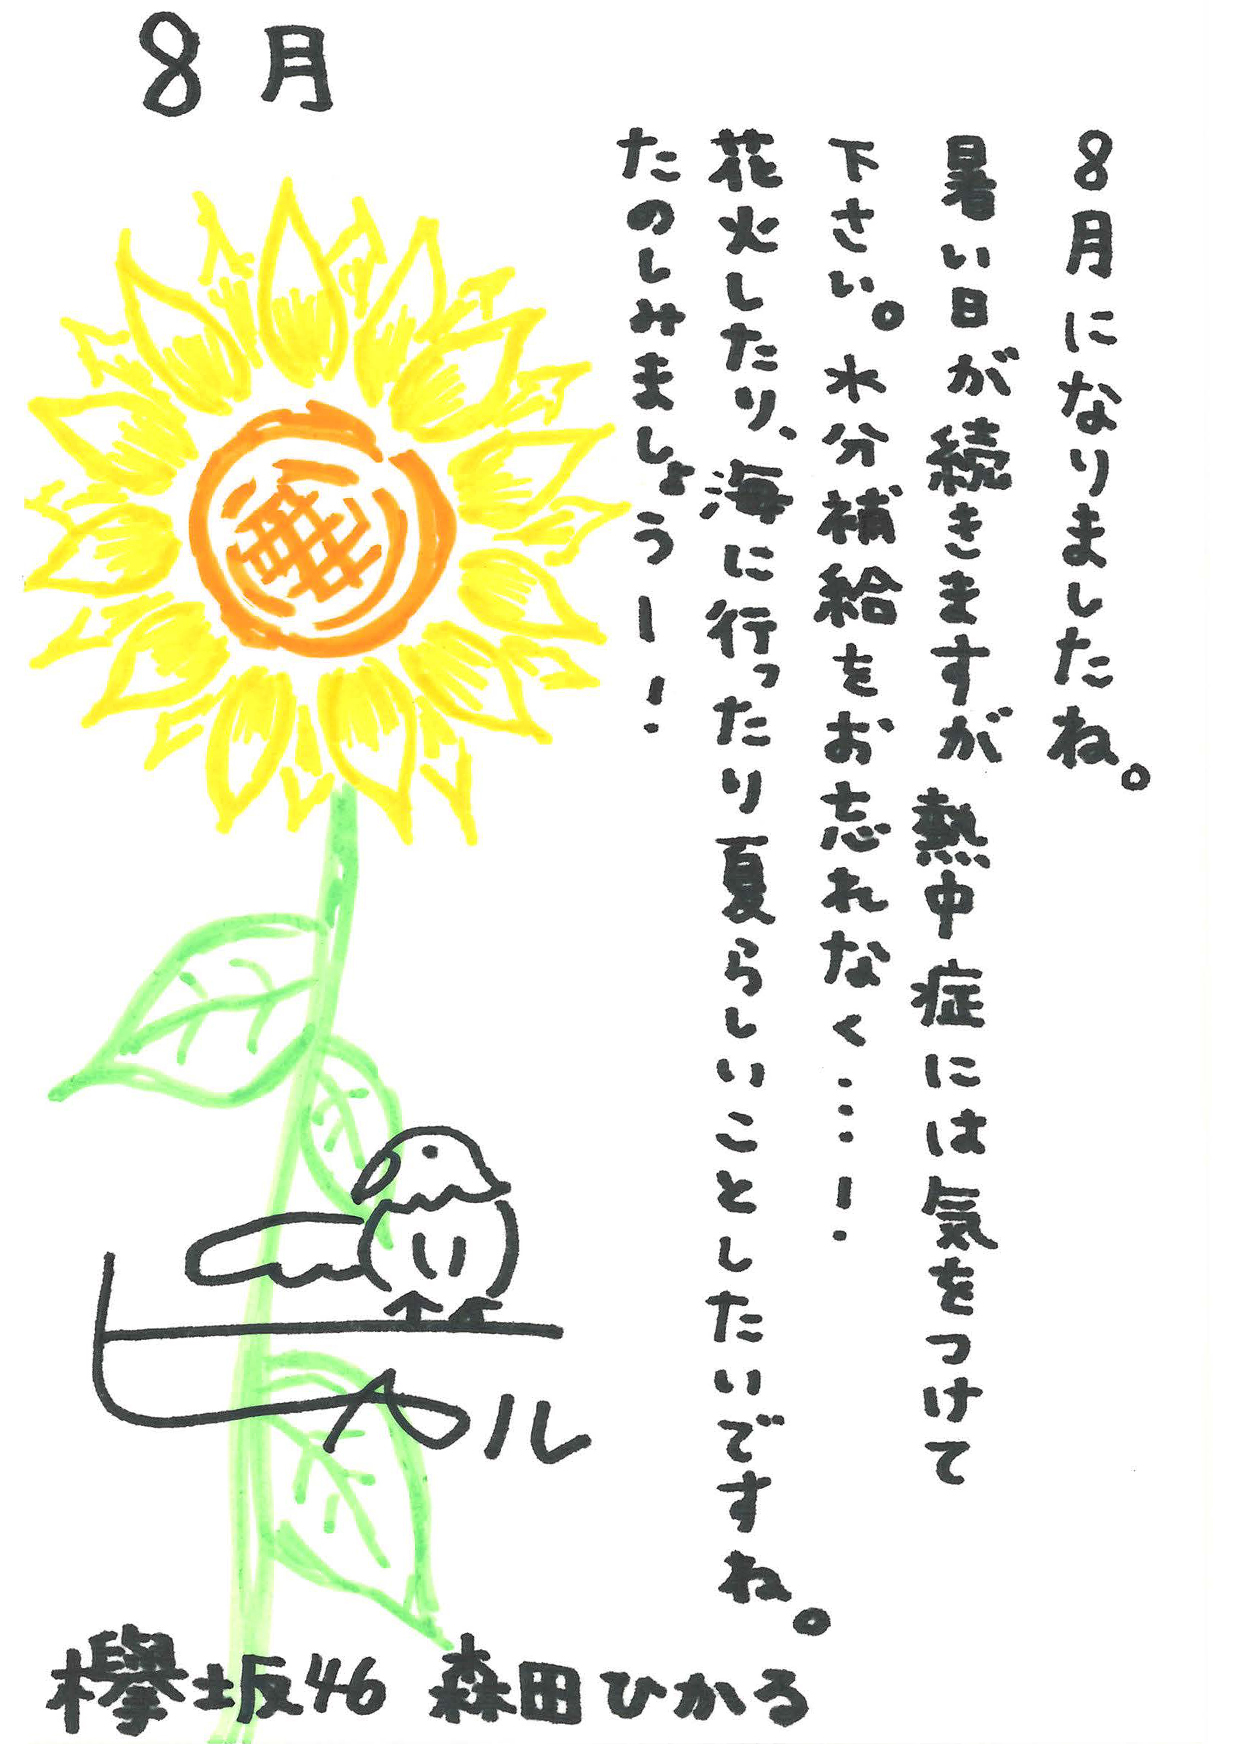 8月
8月になりましたね。
暑い日が続きますが熱中症には気をつけて
下さい。水分補給をお忘れなく…!
花火したり、海に行ったり夏らしいことしたいですね。
たのしみましょうー!
欅坂46 森田ひかる